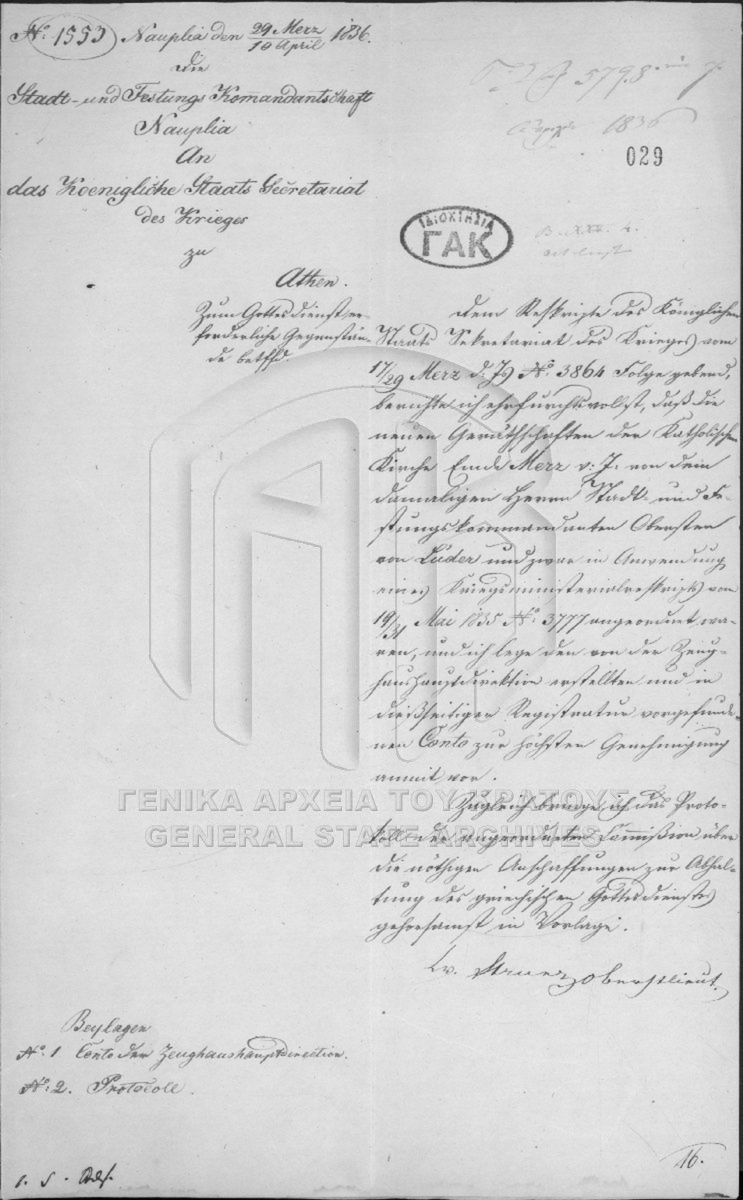 No. 1553 Nauplia den 29 Merz / 10 April 1836.
Die
Stadt- und Festungs Komandantschaft
Nauplia
An
das Koenigliche Staats Secretariat
des Krieges
zu
Athen.
Zum Gottesdienst er-
forderliche Gegenstän-
de betffd.
5798
1836
029
ΙΔΙΟΚΤΗΣΙΑ
ΓΑΚ
Dem Reskripte des Königlichen
Staats Sekretariat des Krieges vom
17/29 Merz d. Js No. 3864 Folge gebend,
berichte ich ehrfurchtsvollst, daß die
neuen Geräthschaften der Katholischen
Kirche Ende Merz v. J. von dem
damaligen Herrn Stadt- und Fe-
stungskommandanten Obersten
von Lüder und zwar in Anwendung
eines Kriegsministerialreskripts vom
19/31 Mai 1835 No. 3777 angeordnet wa-
ren, und ich lege den von der Zeug-
haushauptdirektion erstellten und in
dießseitiger Registratur vorgefunde-
nen Conto zur höchsten Genehmigung
anmit vor.
Zugleich bringe ich das Proto-
koll der angeordneten Commißion über
die nöthigen Anschaffungen zur Abhal-
tung des griechischen Gottesdienstes
gehorsamst in Vorlage.
Oberstlieut.
Beylagen
No. 1 Conto der Zeughaushauptdirection.
No. 2. Protocoll.
16.
ΓΕΝΙΚΑ ΑΡΧΕΙΑ ΤΟΥ ΚΡΑΤΟΥΣ
GENERAL STATE ARCHIVES